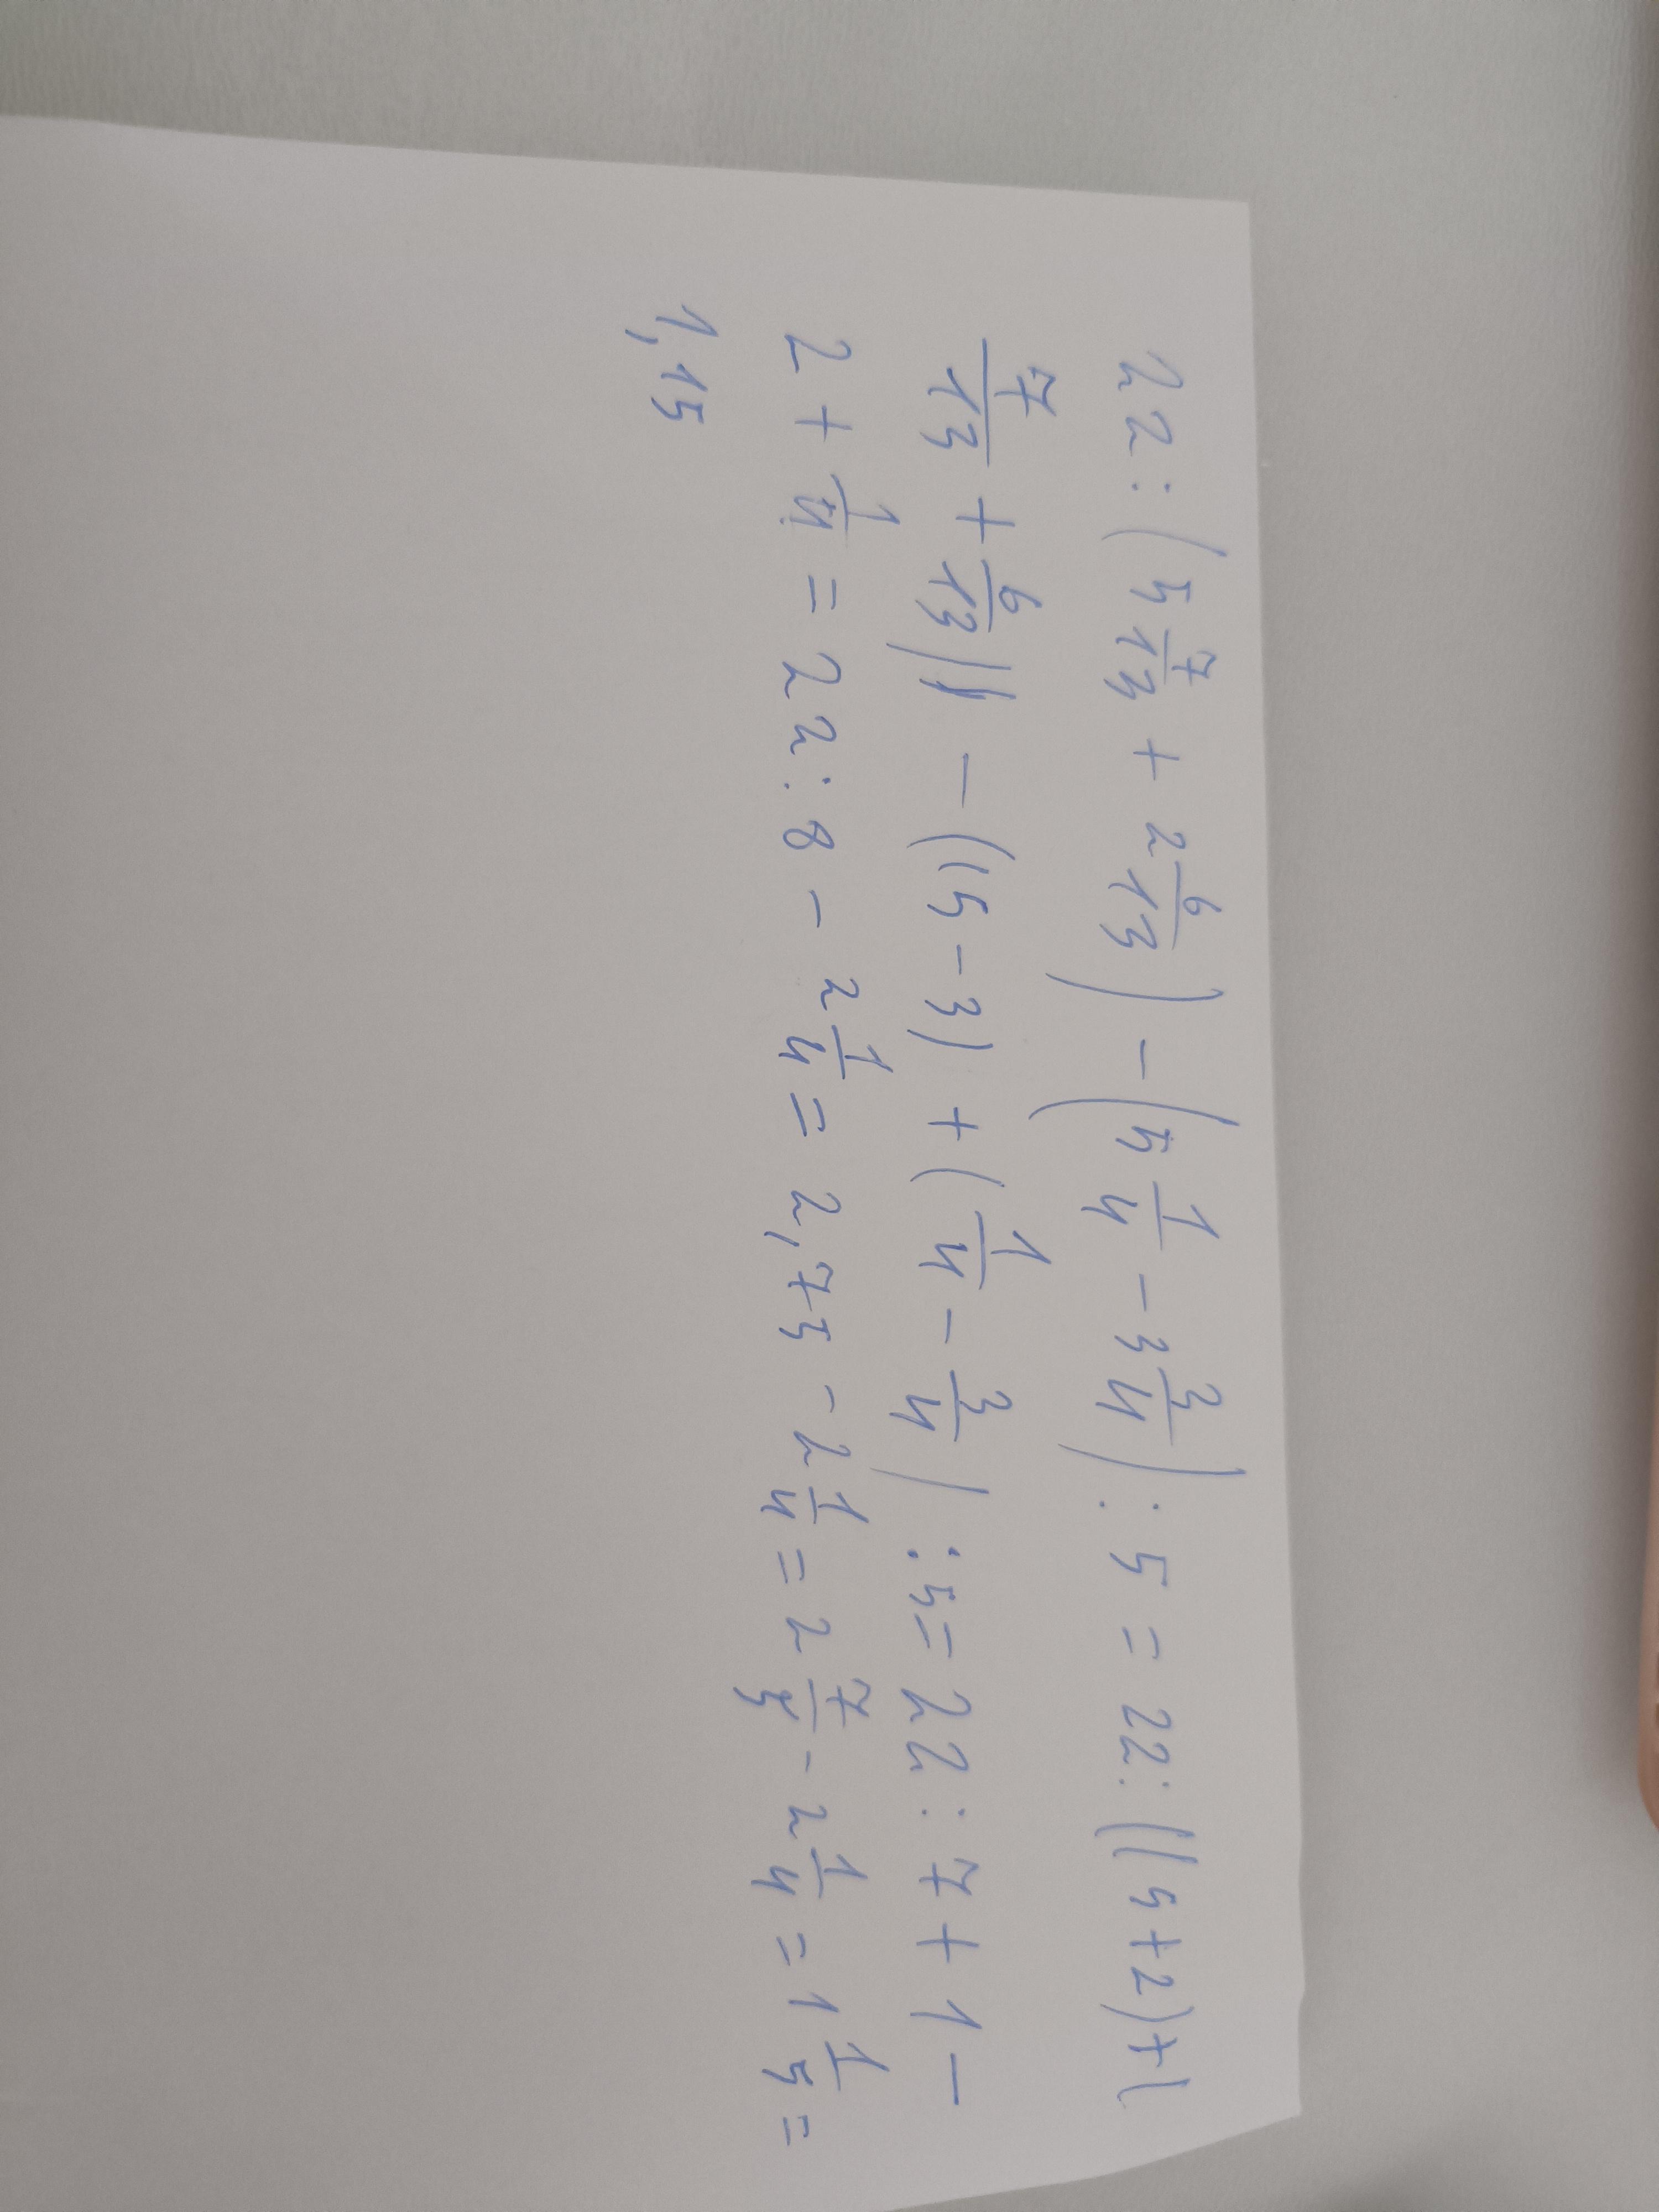 22 : (5 7/13 + 2 6/13) - (5 1/4 - 3 3/4) : 5 = 22 : ((5+2)+(
7/13 + 6/13)) - ((5-3) + (1/4 - 3/4) : 5 = 22 : 7 + 1 -
2 + 1/4 = 22 : 8 - 2 1/4 = 2,75 - 2 1/4 = 2 7/5 - 2 1/4 = 1 1/5 =
1,15